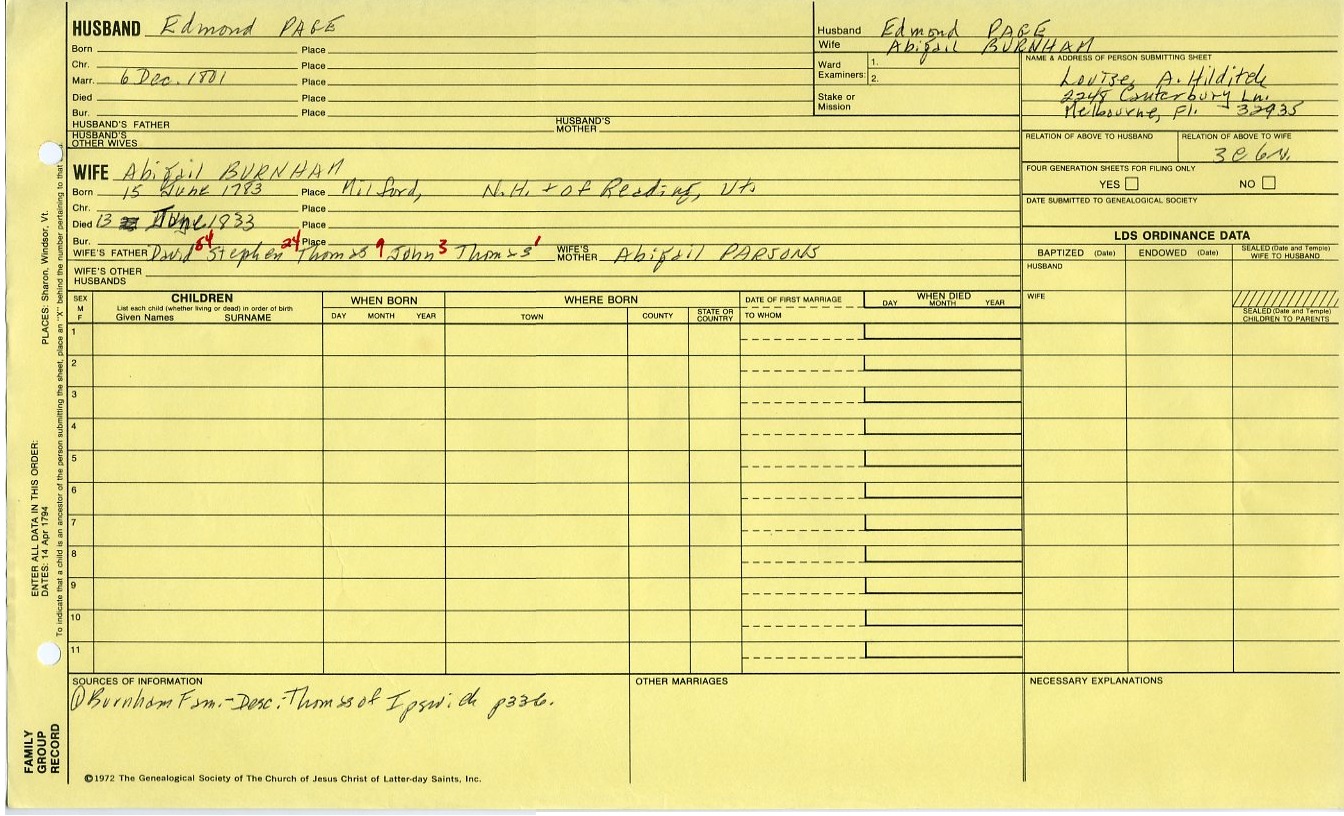 HUSBAND Edmond PAGE
Born Place
Chr. Place
Marr. 6 Dec. 1801 Place
Died Place
Bur. Place
HUSBAND'S FATHER HUSBAND'S MOTHER
HUSBAND'S OTHER WIVES
Husband Edmond PAGE
Wife Abigail BURNHAM
Ward Examiners: 1.
2.
Stake or Mission
NAME & ADDRESS OF PERSON SUBMITTING SHEET
Louise A. Hilditch
2248 Canterbury Ln.
Melbourne, Fl. 32935
RELATION OF ABOVE TO HUSBAND RELATION OF ABOVE TO WIFE
3C6N.
FOUR GENERATION SHEETS FOR FILING ONLY
YES NO
DATE SUBMITTED TO GENEALOGICAL SOCIETY
WIFE Abigail BURNHAM
Born 15 June 1783 Place Milford, N.H. + of Reading, Vt.
Chr. Place
Died 13 June 1833 Place
Bur. Place
WIFE'S FATHER David 54 Stephen 24 Thomas 9 John 3 Thomas 1 WIFE'S MOTHER Abigail PARSONS
WIFE'S OTHER HUSBANDS
LDS ORDINANCE DATA
BAPTIZED (Date) ENDOWED (Date) SEALED (Date and Temple) WIFE TO HUSBAND
HUSBAND
WIFE
SEALED (Date and Temple) CHILDREN TO PARENTS
SEX M F
CHILDREN
List each child (whether living or dead) in order of birth
Given Names SURNAME
WHEN BORN
DAY MONTH YEAR
WHERE BORN
TOWN COUNTY STATE OR COUNTRY
DATE OF FIRST MARRIAGE
TO WHOM
WHEN DIED
DAY MONTH YEAR
1
2
3
4
5
6
7
8
9
10
11
SOURCES OF INFORMATION
① Burnham Fam. - Desc. Thomas of Ipswich p336.
OTHER MARRIAGES
NECESSARY EXPLANATIONS
©1972 The Genealogical Society of The Church of Jesus Christ of Latter-day Saints, Inc.
FAMILY GROUP RECORD
ENTER ALL DATA IN THIS ORDER:
DATES: 14 Apr 1794 PLACES: Sharon, Windsor, Vt.
To indicate that a child is an ancestor of the person submitting the sheet, place an "X" behind the number pertaining to that